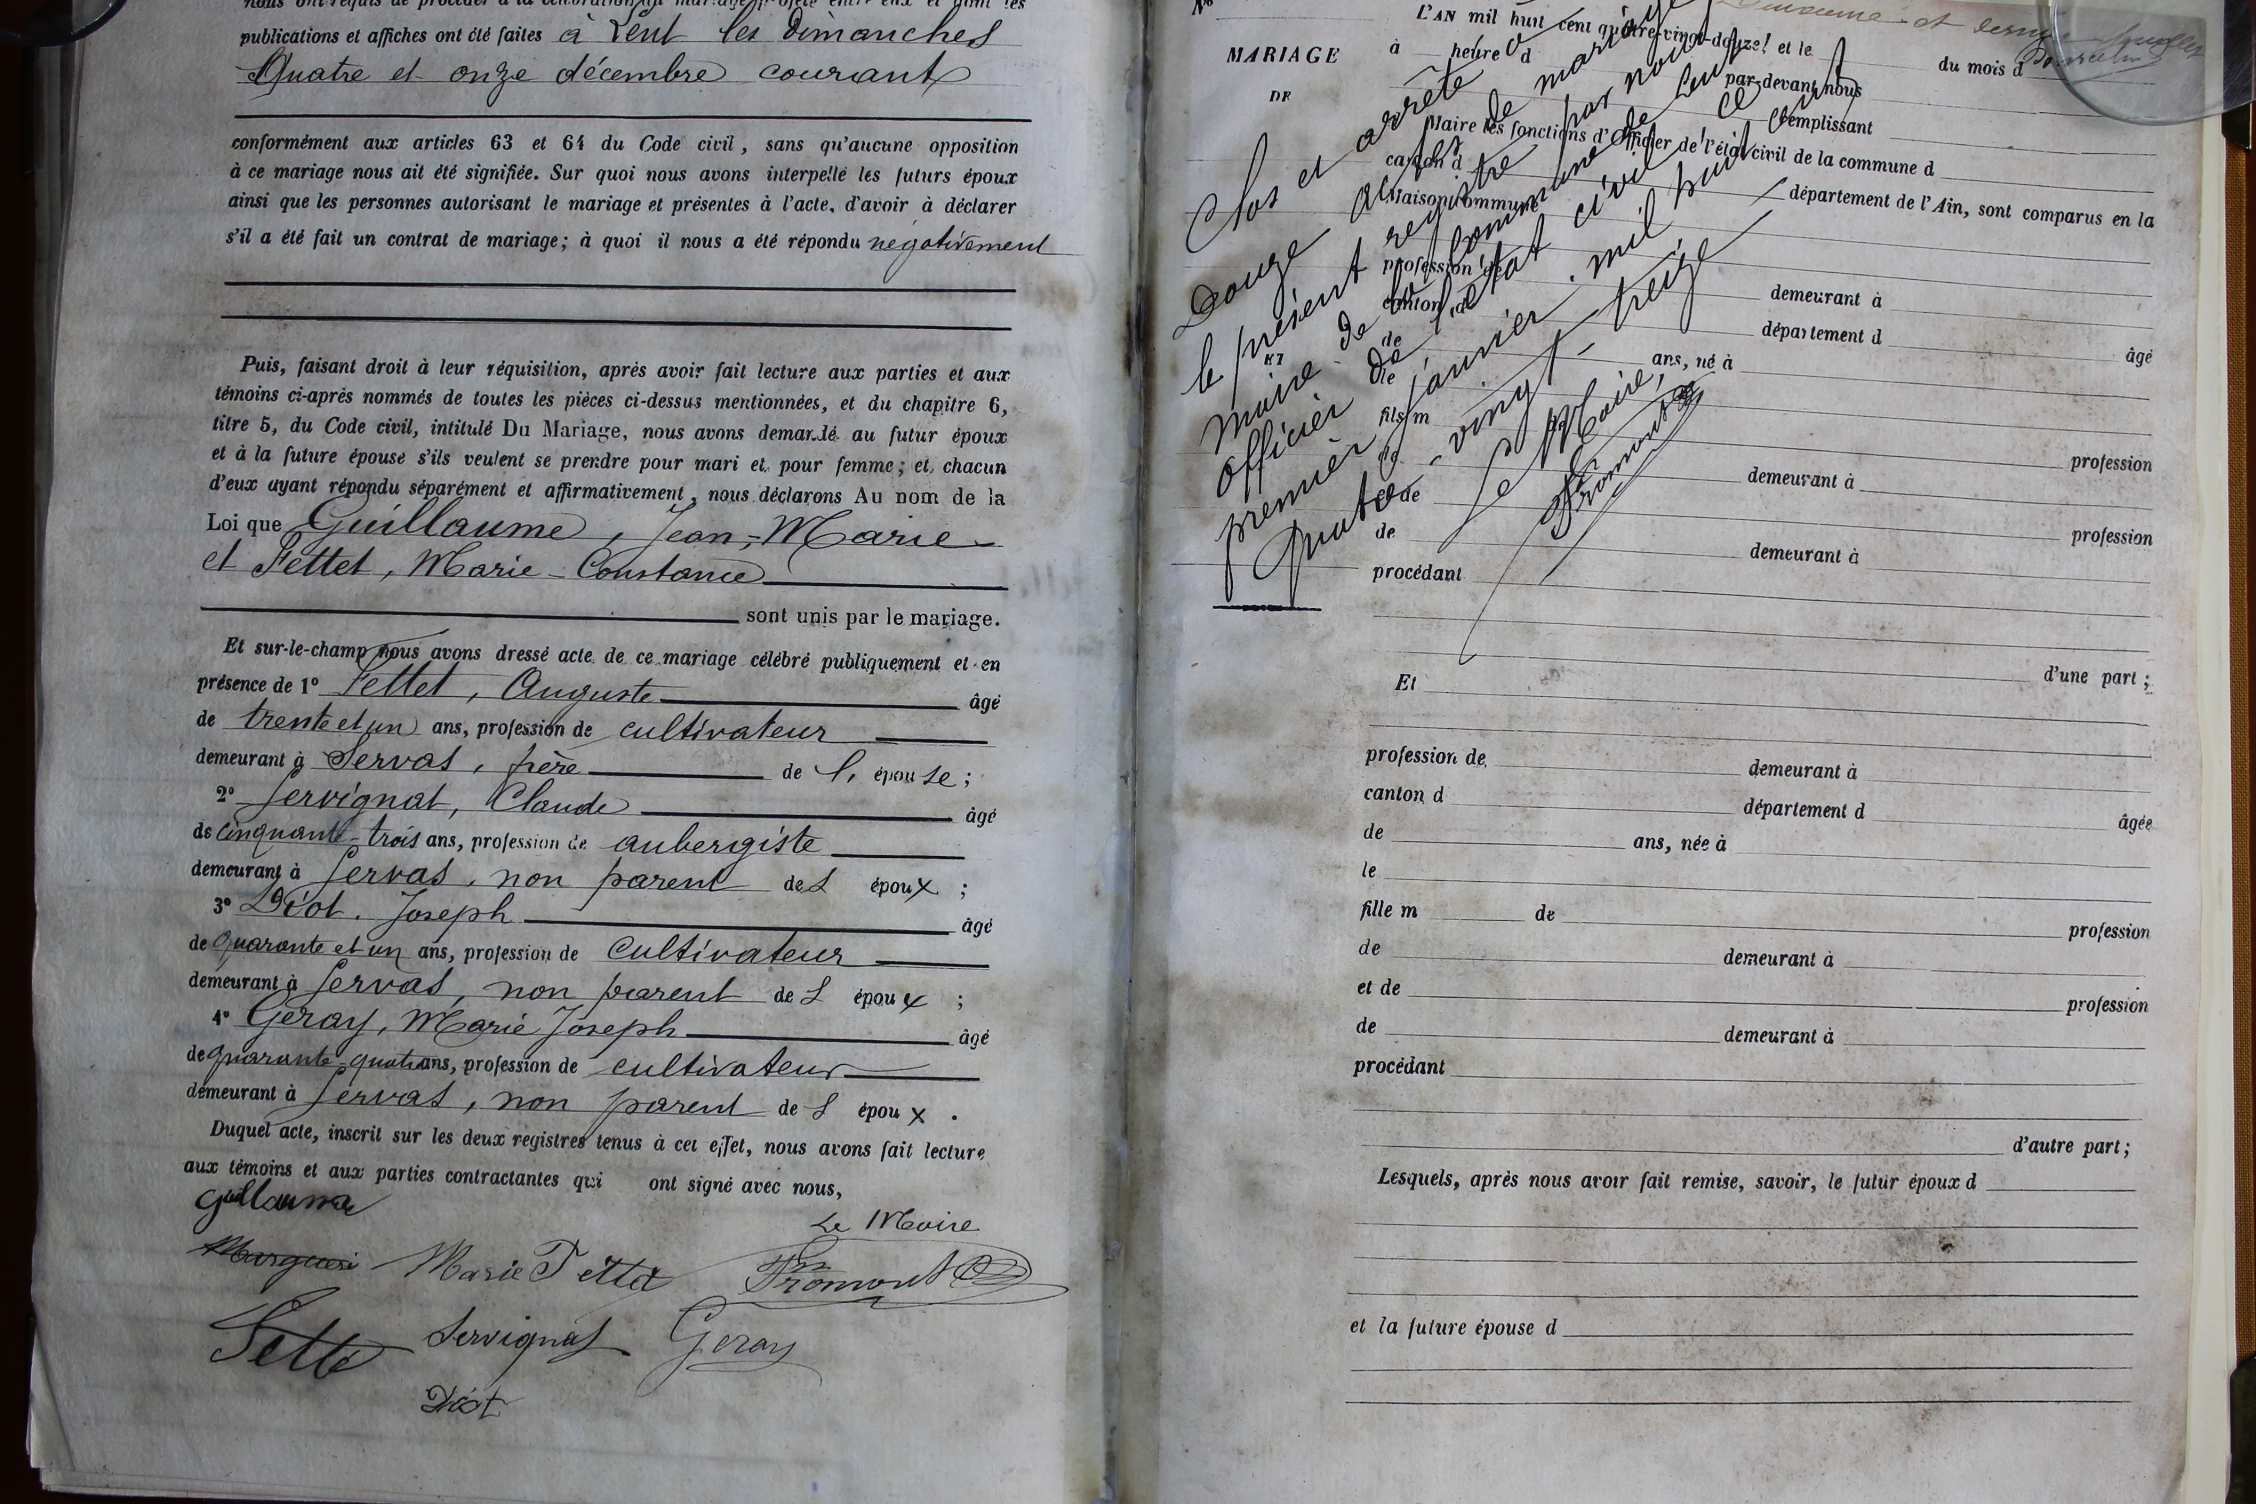 nous ont requis de procéder à la célébration du mariage projeté entre eux et dont les
publications et affiches ont été faites à Lent les Dimanches
Quatre et onze décembre courant
conformément aux articles 63 et 64 du Code civil, sans qu'aucune opposition
à ce mariage nous ait été signifiée. Sur quoi nous avons interpellé les futurs époux
ainsi que les personnes autorisant le mariage et présentes à l'acte, d'avoir à déclarer
s'il a été fait un contrat de mariage; à quoi il nous a été répondu négativement
Puis, faisant droit à leur réquisition, après avoir fait lecture aux parties et aux
témoins ci-après nommés de toutes les pièces ci-dessus mentionnées, et du chapitre 6,
titre 5, du Code civil, intitulé Du Mariage, nous avons demandé au futur époux
et à la future épouse s'ils veulent se prendre pour mari et pour femme; et, chacun
d'eux ayant répondu séparément et affirmativement, nous déclarons Au nom de la
Loi que Guillaume, Jean-Marie
et Tettet, Marie-Constance
sont unis par le mariage.
Et sur-le-champ nous avons dressé acte de ce mariage célébré publiquement et en
présence de 1° Tettet, Auguste âgé
de trente et un ans, profession de cultivateur
demeurant à Servas, frère de l, épouse;
2° Servignat, Claude âgé
de cinquante-trois ans, profession de aubergiste
demeurant à Servas, non parent des époux;
3° Diot, Joseph âgé
de quarante et un ans, profession de cultivateur
demeurant à Servas, non parent des époux;
4° Geray, Marie Joseph âgé
de quarante-quatre ans, profession de cultivateur
demeurant à Servas, non parent des époux.
Duquel acte, inscrit sur les deux registres tenus à cet effet, nous avons fait lecture
aux témoins et aux parties contractantes qui ont signé avec nous,
Guillaume
Le Maire
Marie Tettet Fromont
Servignat Geray
Diot
MARIAGE
DE
L'AN mil huit cent quatre-vingt-douze! et le
à heure d du mois d
par-devant nous
Maire remplissant
les fonctions d'Officier de l'état civil de la commune d
canton d département de l'Ain, sont comparus en la
Maison commune
profession de demeurant à
canton d département d âgé
de ans, né à
ET
le
fils m de profession
de demeurant à
et de profession
de demeurant à
procédant
d'une part;
Clos et arrêté à
Douze actes de mariage
le présent registre par nous
Maire de la Commune de Lent
officier de l'état civil ce
premier janvier mil huit cent
quatre-vingt-treize
Le Maire,
Fromont
Et
profession de demeurant à
canton d département d âgée
de ans, née à
le
fille m de profession
de demeurant à
et de profession
de demeurant à
procédant
d'autre part;
Lesquels, après nous avoir fait remise, savoir, le futur époux d
et la future épouse d